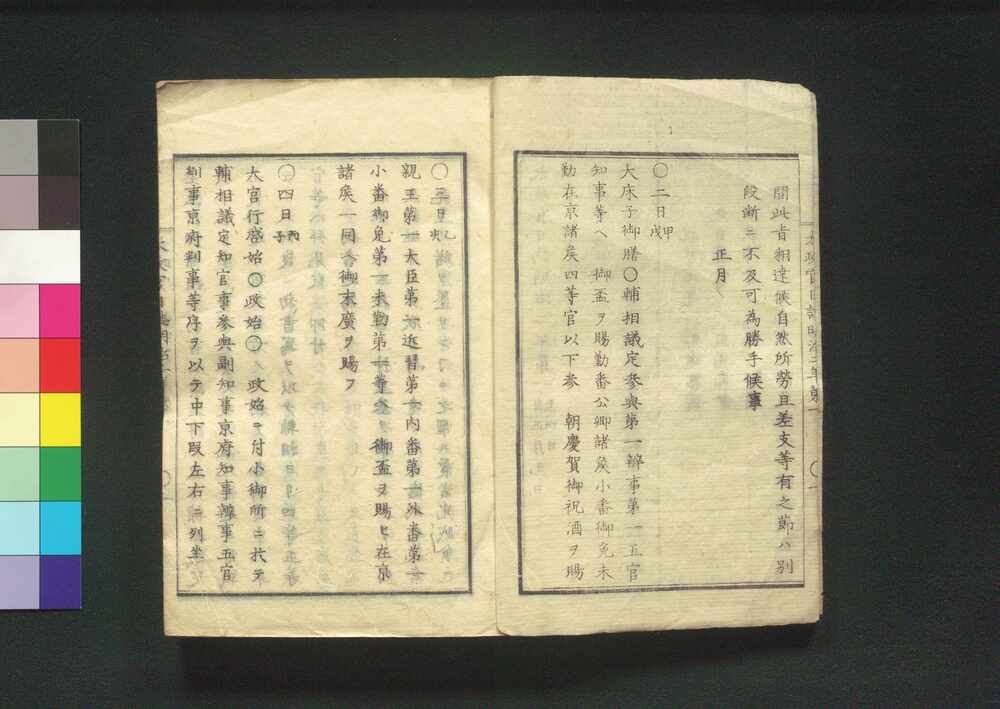 間此旨相達候自然所労且差支等有之節ハ別
段断ニ不及可為勝手候事
正月
〇二日甲戌
大床子御膳〇輔相議定参與第一辨事第一五官
知事等ヘ 御盃ヲ賜勤番公卿諸矦小番御免未
勤在京諸矦四等官以下参 朝慶賀御祝酒ヲ賜
〇三日乙亥
親王第一大臣第一近習第一内番第一外番第一
小番御免第一未勤第一等参 御盃ヲ賜ヒ在京
諸矦一同ヘ御末廣ヲ賜フ
〇四日丙子
大宮行啓始〇政始〇 政始ヲ付小御所ニ於テ
輔相議定知官事参與副知事京府知事辨事五官
判事京府判事等序ヲ以テ中下段左右ニ列坐
太政官日誌明治二年第一